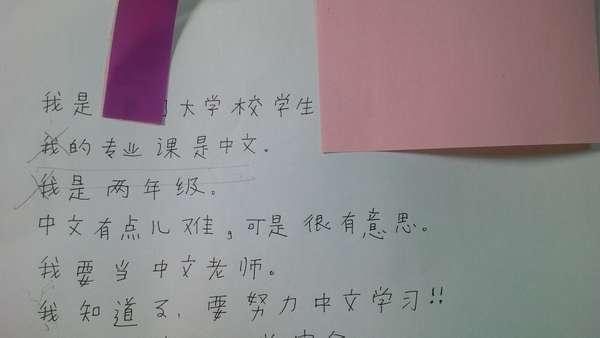 我是 大学校学生
我的专业课是中文。
我是两年级。
中文有点儿难,可是很有意思。
我要当中文老师。
我知道了,要努力中文学习!!